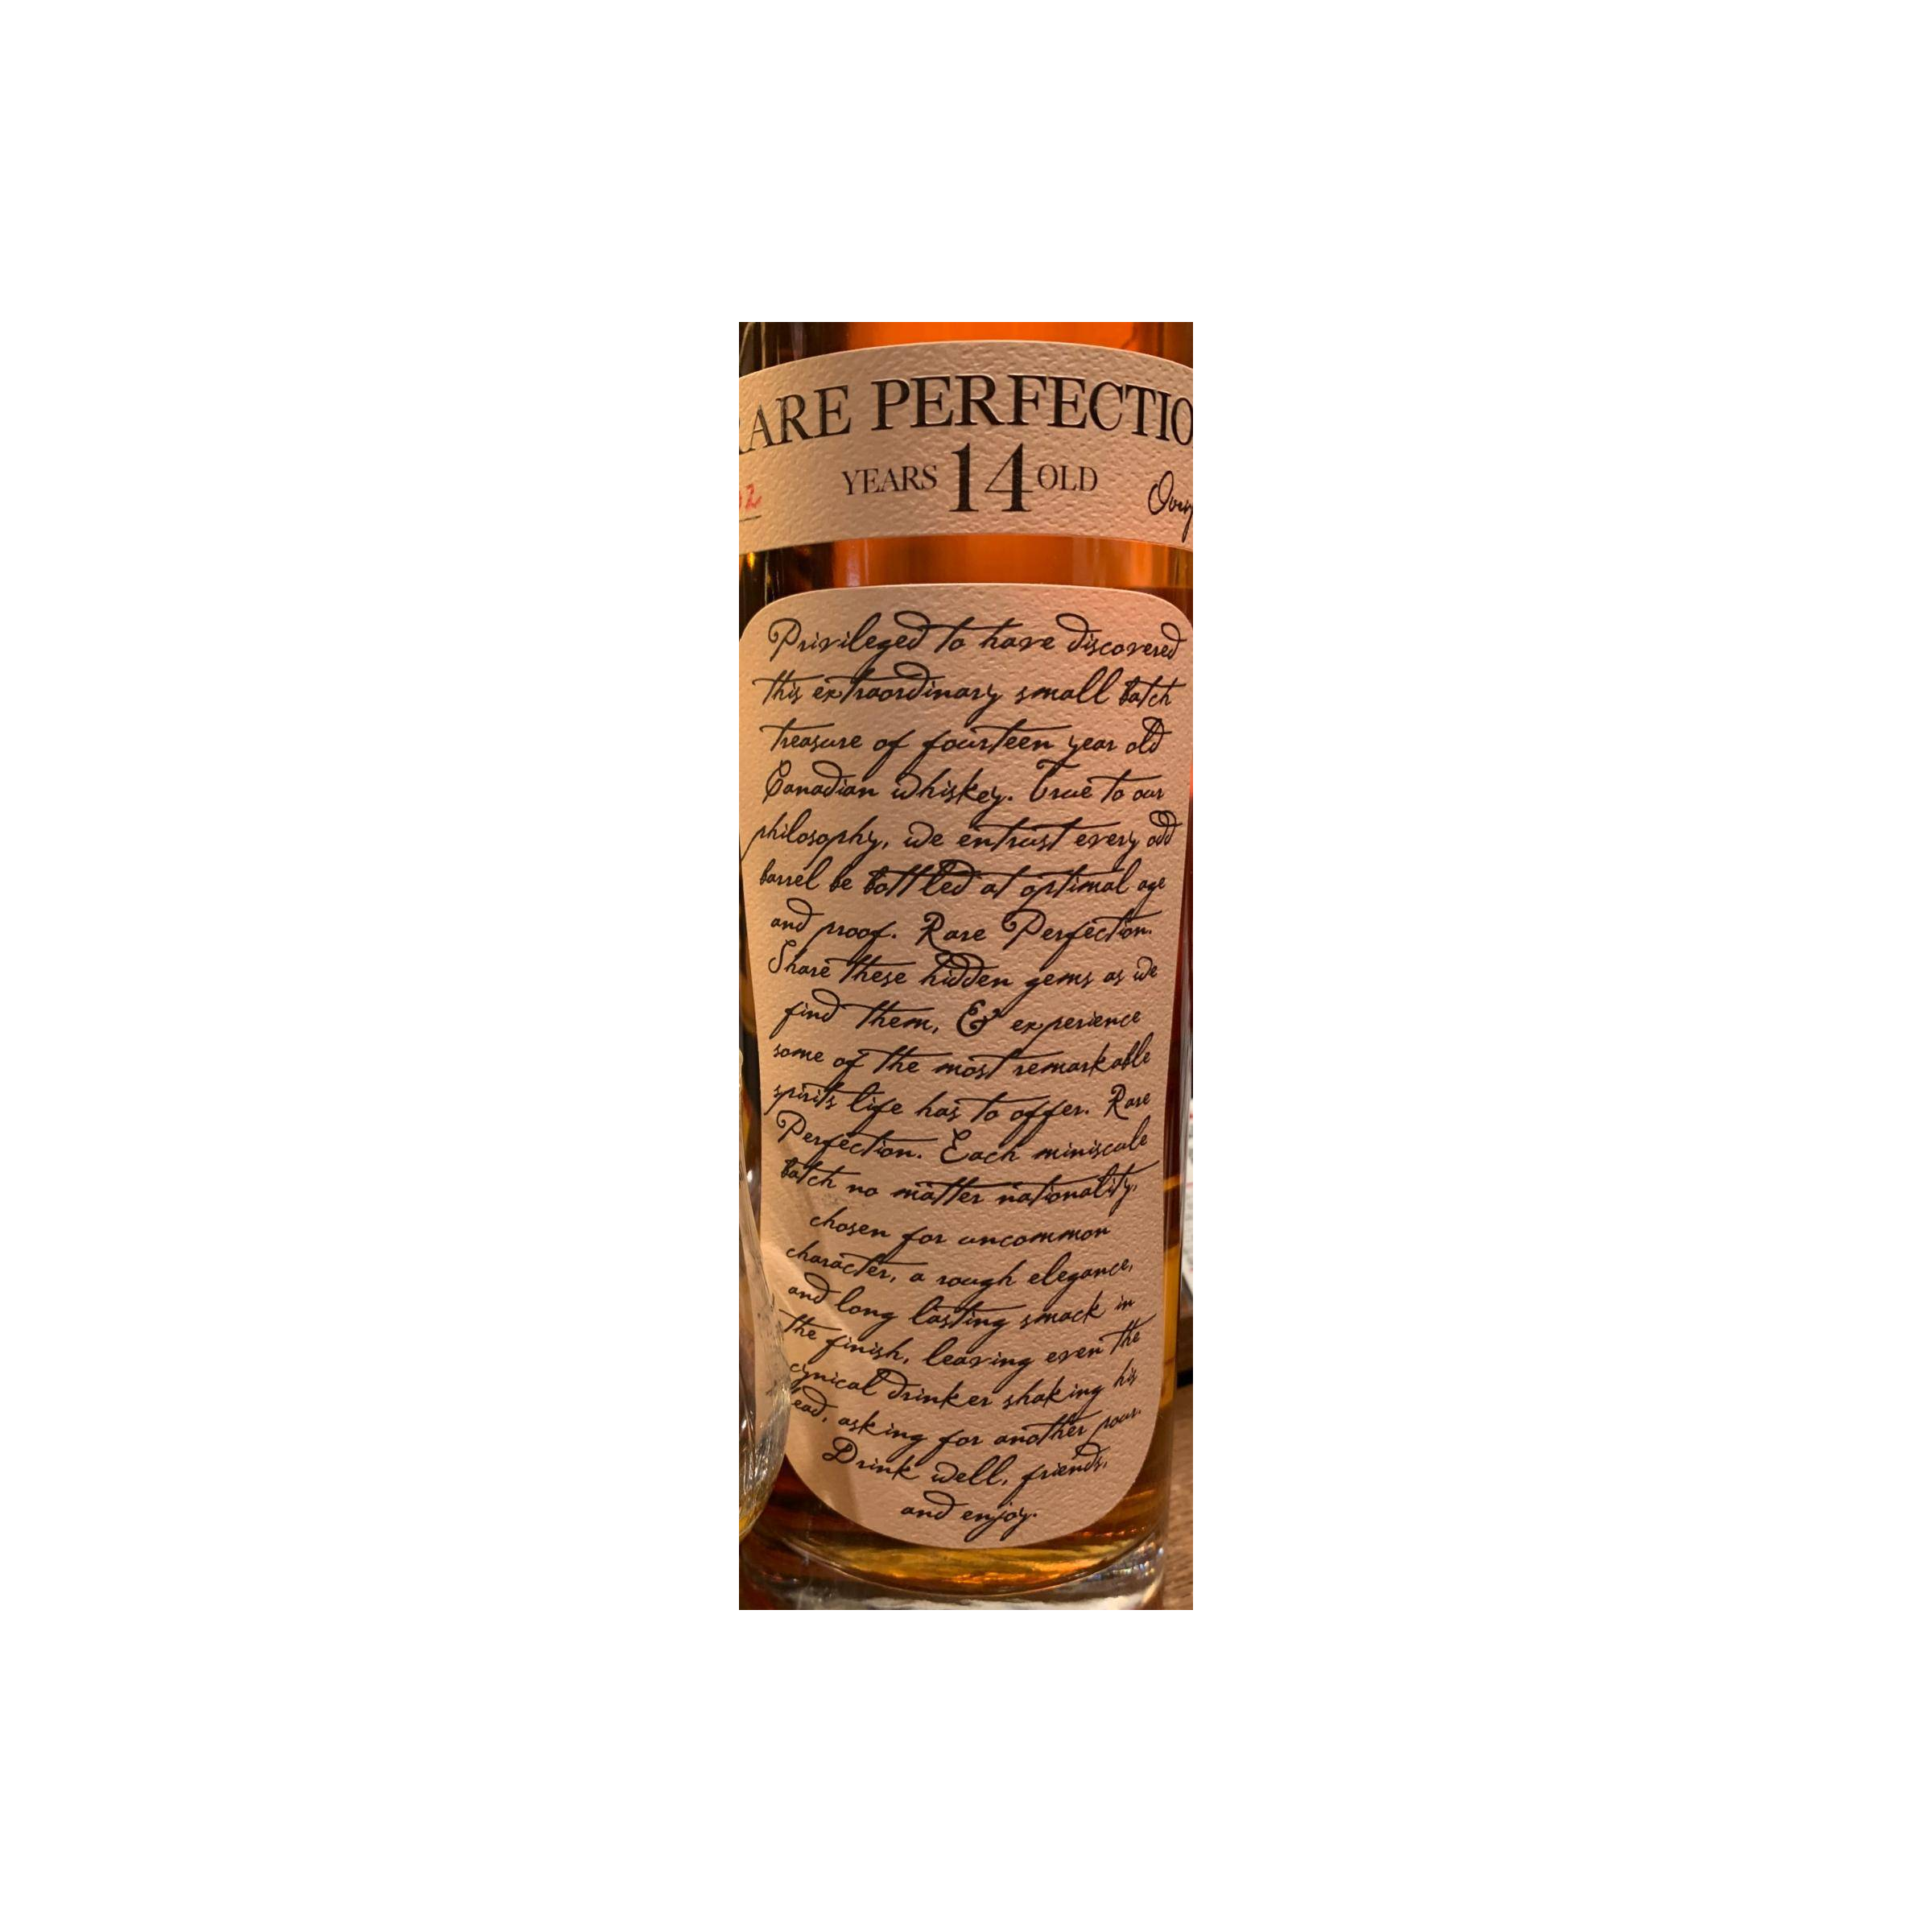 RARE PERFECTIO
YEARS 14 OLD
2
Privileged to have discovered
this extraordinary small batch
treasure of fourteen year old
Canadian whiskey. True to our
philosophy, we entrust every odd
barrel be bottled at optimal age
and proof. Rare Perfection.
Share these hidden gems as we
find them, & experience
some of the most remarkable
spirits life has to offer. Rare
Perfection. Each miniscule
batch no matter nationality,
chosen for uncommon
character, a rough elegance,
and long lasting smack in
the finish, leaving even the
cynical drinker shaking his
head, asking for another pour.
Drink well, friends,
and enjoy.